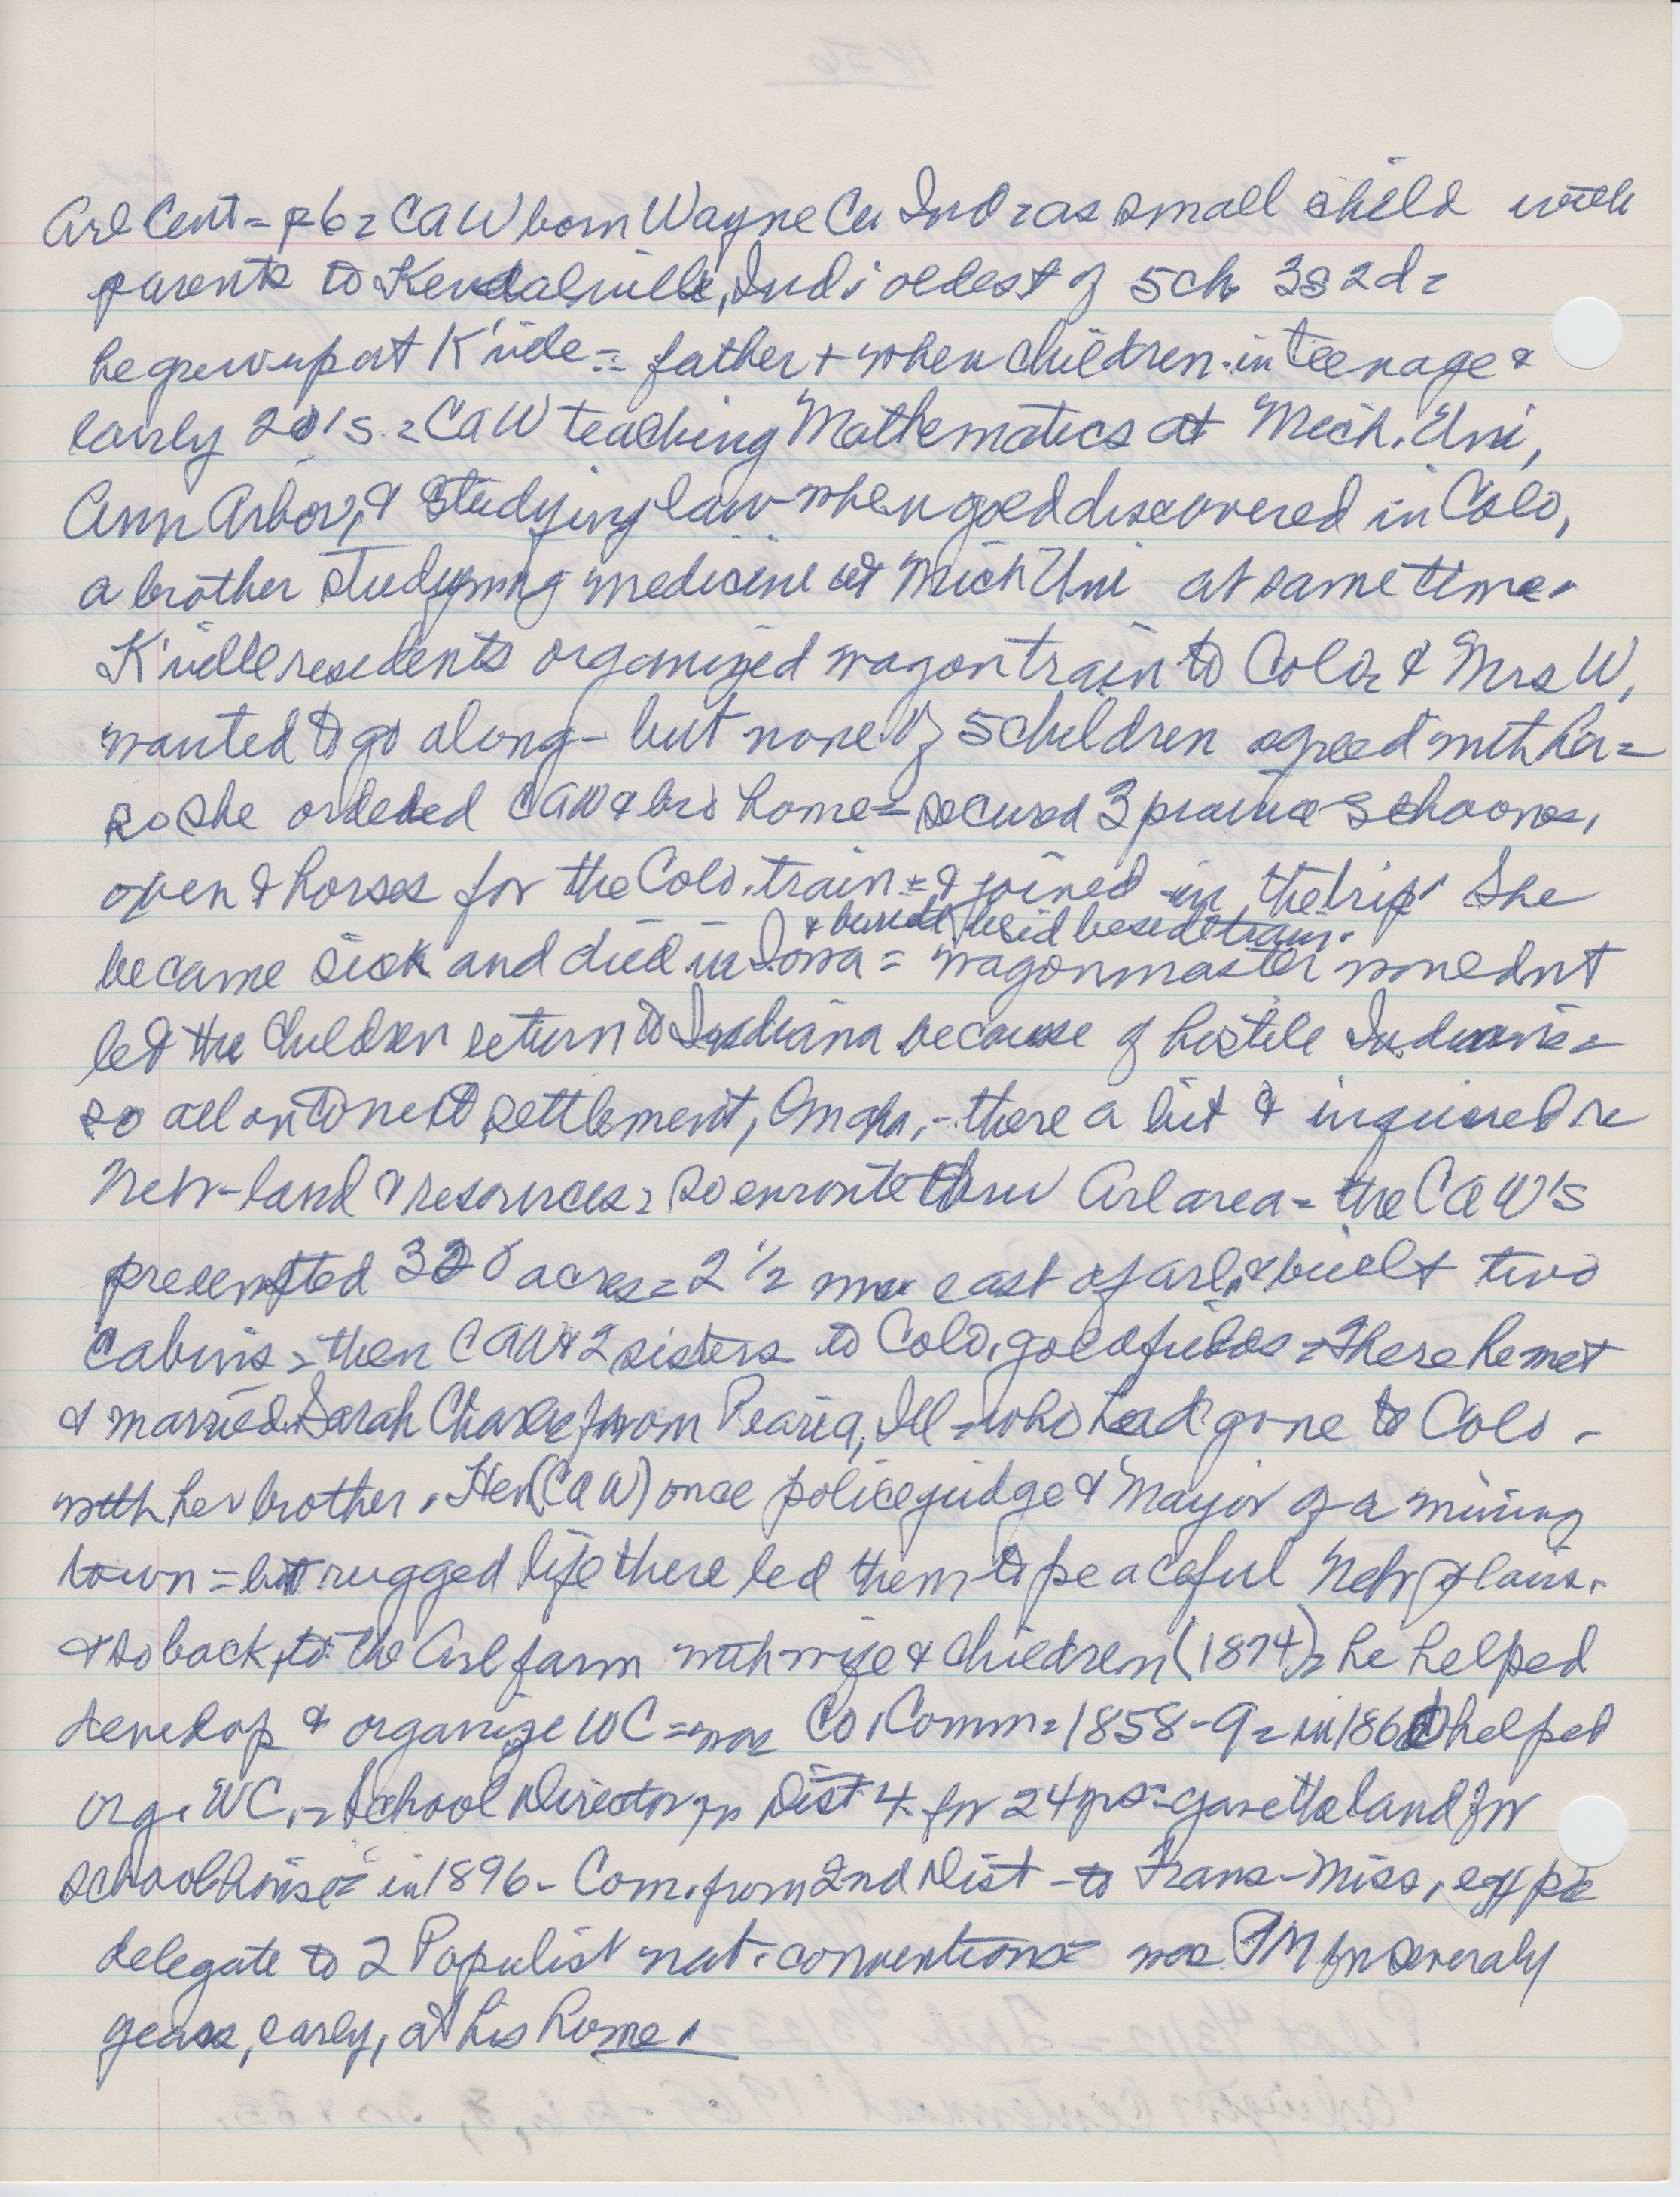 Arl Cent = p6 = CAW born Wayne Co Ind = as small child with
parents to Kendalville, Ind; oldest of 5 ch 3s 2d =
he grew up at K'ville = father + when children in teenage &
early 20's = CAW teaching Mathematics at Mich. Uni,
Ann Arbor, & studying law when gold discovered in Colo,
a brother studying medicine at Mich Uni at same time.
K'ville residents organized wagon train to Colo, & Mrs W,
wanted to go along - but none of 5 children agreed with her =
so she ordered CAW & bro home = secured 3 prairie schooners,
oxen & horses for the Colo. train = & joined in the trip. She
& buried beside trail.
became sick and died in Iowa = wagonmaster wouldnt
let the children return to Indiana because of hostile Indians =
so all on to next settlement, Omaha, - there a bit & inquired re
Nebr - land & resources = so enroute thru Arl area = the CAW's
preempted 320 acres = 2 1/2 mi east of Arl, & built two
cabins = then CAW & 2 sisters to Colo, goldfields = There he met
& married Sarah from Pearia, Ill - who had gone to Colo -
with her brother. He (CAW) once police judge & Mayor of a mining
town = but rugged life there led them to peaceful Nebr plains,
& so back to the Arl farm with wife & children (1874) = he helped
develop & organize WC = was Co. Comm = 1858-9 = in 1860 helped
org. WC. = School Director in Dist 4 for 24 yrs = gave the land for
schoolhouse = in 1896 - Com. from 2nd Dist - to Trans-Miss,
delegate to 2 Populist nat. conventions = was PM for several
years, early, at his home.